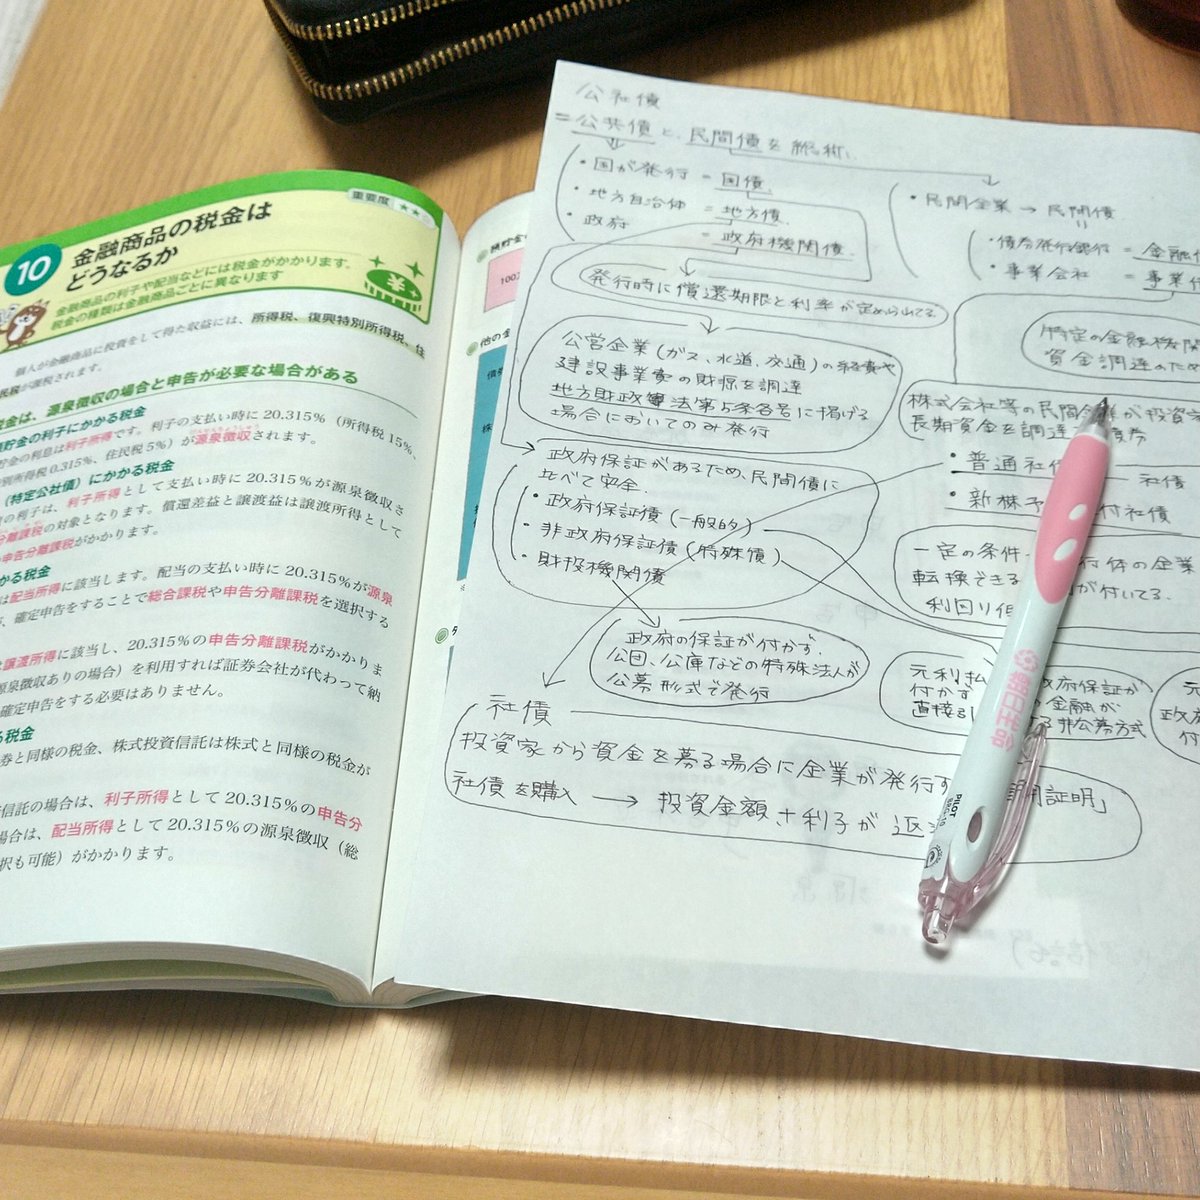 重要度 ★★
10
金融商品の税金は
どうなるか
金融商品の利子や配当などには税金がかかります。
税金の種類は金融商品ごとに異なります
個人が金融商品に投資をして得た収益には、所得税、復興特別所得税、住
民税が課税されます。
税金は、源泉徴収の場合と申告が必要な場合がある
預貯金の利子にかかる税金
貯金の利息は利子所得です。利子の支払い時に20.315%（所得税15%、
別所得税0.315%、住民税5%）が源泉徴収されます。
（特定公社債）にかかる税金
の利子は、利子所得として支払い時に20.315%が源泉徴収さ
分離課税の対象となります。償還差益と譲渡益は譲渡所得として
申告分離課税がかかります。
かる税金
は配当所得に該当します。配当の支払い時に20.315%が源泉
、確定申告をすることで総合課税や申告分離課税を選択する
は譲渡所得に該当し、20.315%の申告分離課税がかかりま
源泉徴収ありの場合）を利用すれば証券会社が代わって納
確定申告をする必要はありません。
る税金
券と同様の税金、株式投資信託は株式と同様の税金が
信託の場合は、利子所得として20.315%の申告分
場合は、配当所得として20.315%の源泉徴収（総
択も可能）がかかります。
他の金
公社債
=公共債と、民間債を総称、
・国が発行 = 国債
・地方自治体 = 地方債
・政府 = 政府機関債
・民間企業 → 民間債
・債券発行銀行 = 金融
・事業会社 = 事業
発行時に償還期限と利率が定められてる
公営企業(ガス、水道、交通)の経費や
建設事業費の財源を調達
地方財政法第5条各号に掲げる
場合においてのみ発行
特定の金融機関
資金調達のため
株式会社等の民間企業が投資家
長期資金を調達 債券
・普通社 社債
・新株予 付社債
政府保証があるため、民間債に
比べて安全.
・政府保証債(一般的)
・非政府保証債(特殊債)
・財投機関債
一定の条件 行体の企業
転換できる が付いてる.
利回り低
政府の保証が付かず.
公団、公庫などの特殊法人が
公募形式で発行
元利払 政府保証が
付かず の金融が
直接引 る非公募方式
政府
付
社債
投資家から資金を募る場合に企業が発行す 用証明」
社債を購入 → 投資金額+利子が返
朝日生命
PILOT